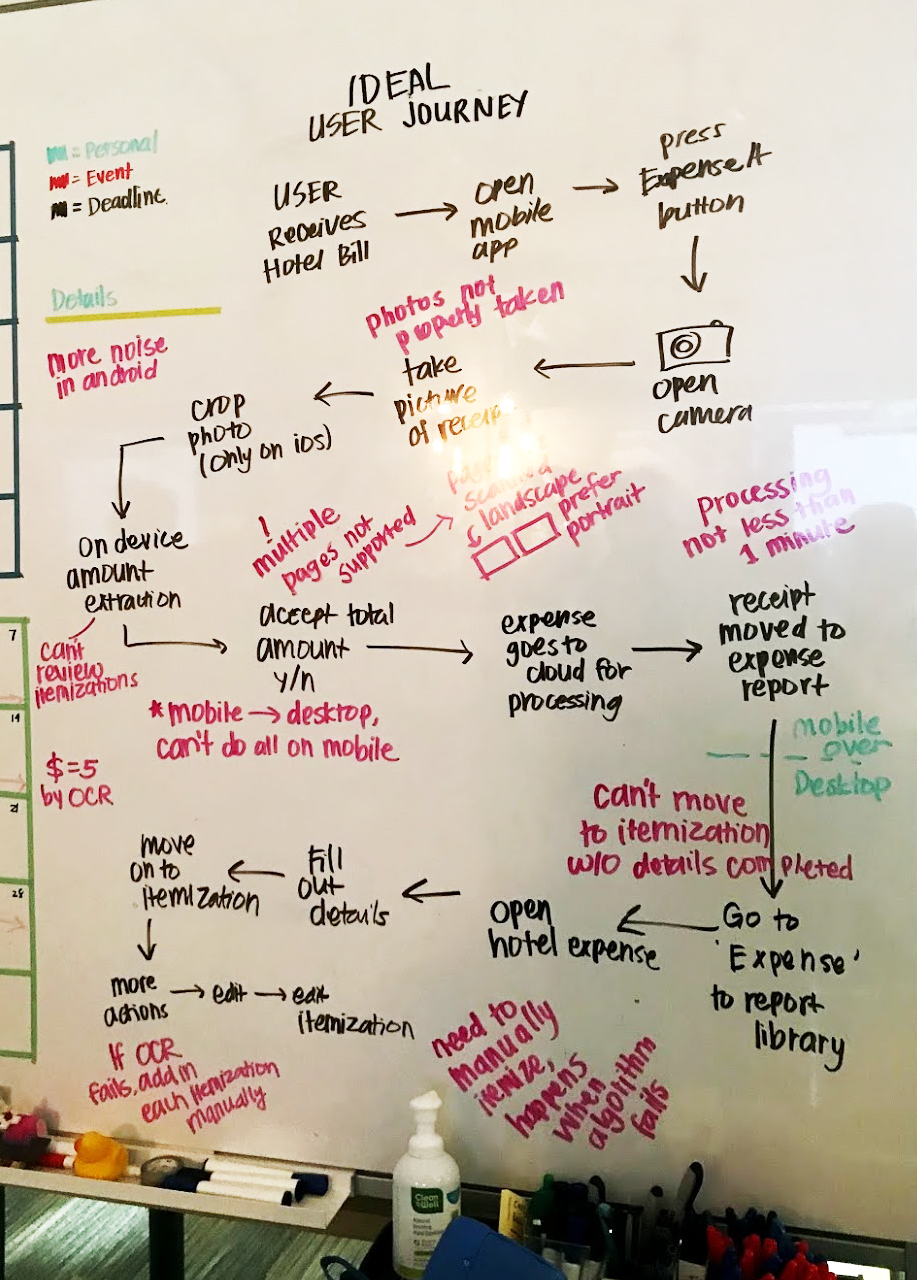 IDEAL
USER JOURNEY
= Personal
= Event
= Deadline.
Details
USER
Receives
Hotel Bill
open
mobile
app
press
ExpenseIt
button
open
camera
photos not
properly taken
take
picture
of receipt
crop
photo
(only on ios)
more noise
in android
on device
amount
extraction
can't
review
itemizations
$=5
by OCR
!
multiple
pages not
supported
scanned
landscape
prefer
portrait
accept total
amount
y/n
*mobile → desktop,
can't do all on mobile
expense
goes to
cloud for
processing
Processing
not less than
1 minute
receipt
moved to
expense
report
mobile
over
Desktop
can't move
to itemization
w/o details completed
Go to
'Expense'
to report
library
Open
hotel expense
Fill
out
details
move
on to
itemization
more
actions
edit
edit
itemization
If OCR
fails, add in
each itemization
manually
need to
manually
itemize,
happens
when
algorithm
fails
7
14
21
28
Clean
Well